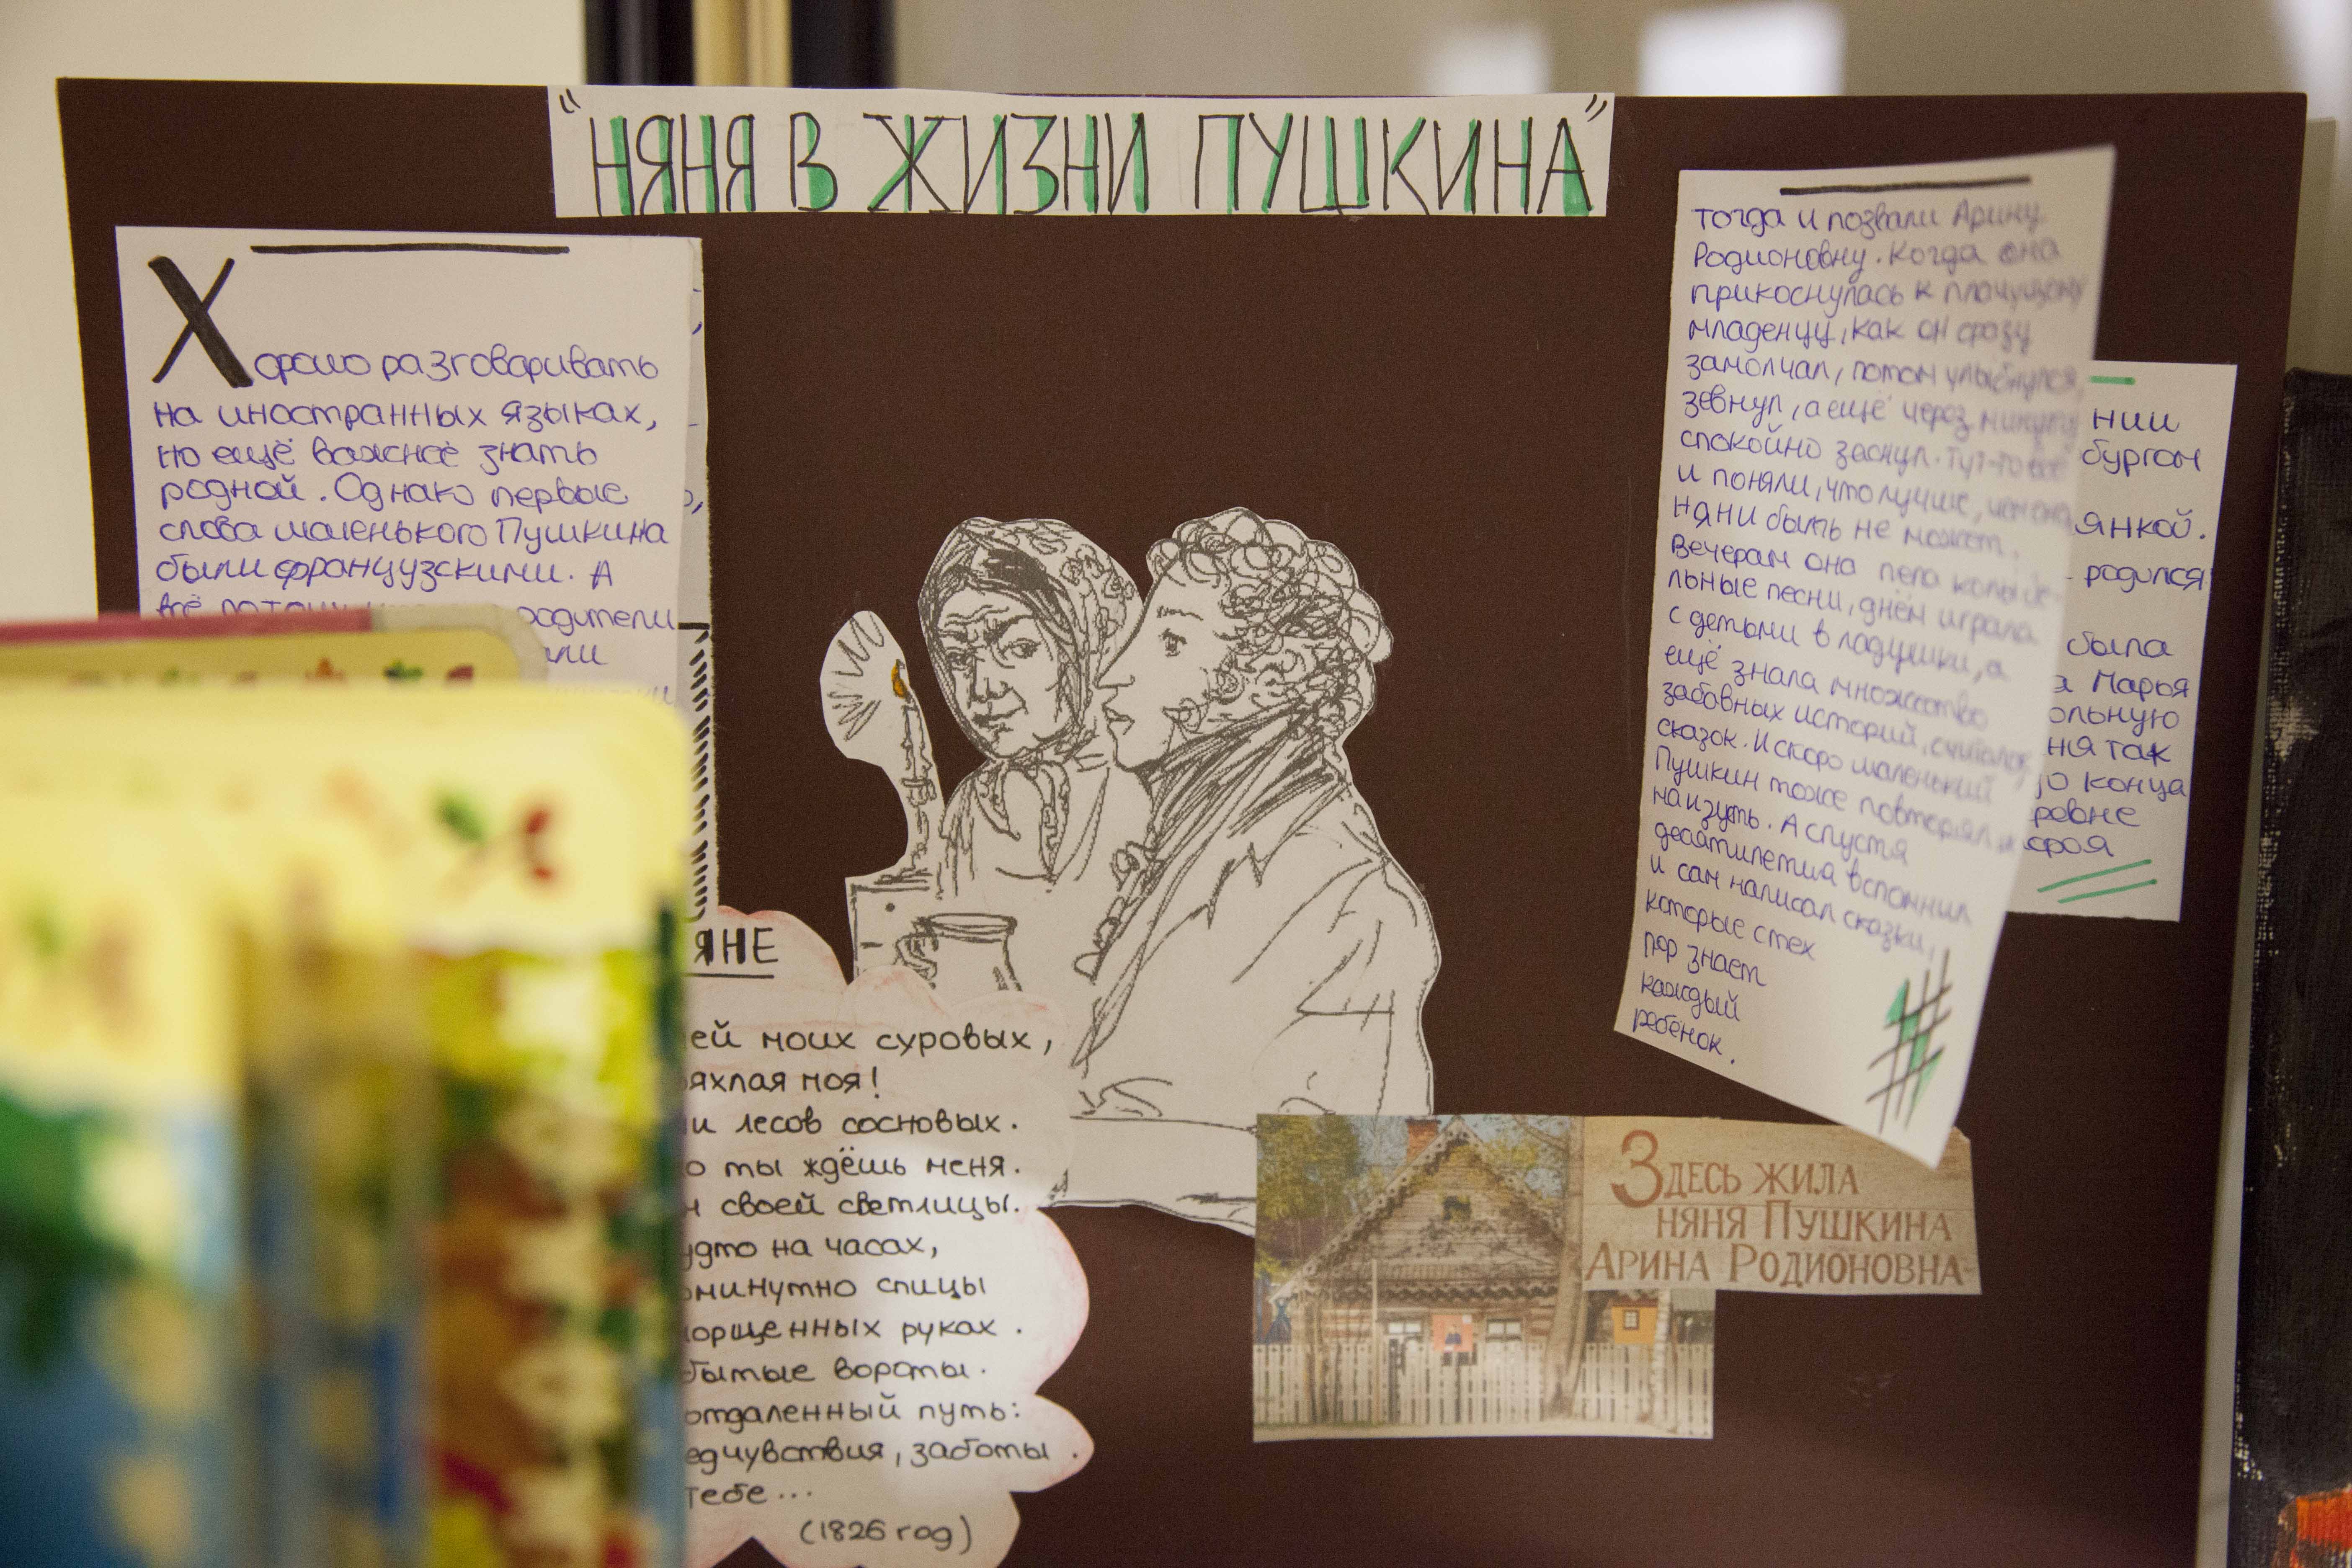 "НЯНЯ В ЖИЗНИ ПУШКИНА"
Хорошо разговаривать
на иностранных языках,
но ещё важнее знать
родной. Однако первые
слова маленького Пушкина
были французскими. А
всё потому родители
тогда и позвали Арину
Родионовну. Когда она
прикоснулась к плачущему
младенцу, как он сразу
замолчал, потом улыбнулся,
зевнул, а ещё через минуту
спокойно заснул. Тут-то все
и поняли, что лучше, чем она
няни быть не может.
Вечерам она пела колыбе-
льные песни, днём играла
с детьми в ладушки, а
ещё знала множество
забавных историй, считалок,
сказок. И скоро маленький
Пушкин тоже повторял их
наизуть. А спустя
десятилетия вспомнил
и сам написал сказки,
которые с тех
пор знает
каждый
ребёнок.
нии
бургом
янкой.
родился
была
а Марья
ольную
ня так
до конца
ровне
сроя
яне
ей моих суровых,
яхлая моя!
и лесов сосновых.
о ты ждёшь меня.
м своей светлицы.
удто на часах,
оминутно спицы
морщенных руках.
бытые вороты.
отдаленный путь:
едчувствия, заботы.
тебе...
(1826 год)
Здесь жила
няня Пушкина
Арина Родионовна